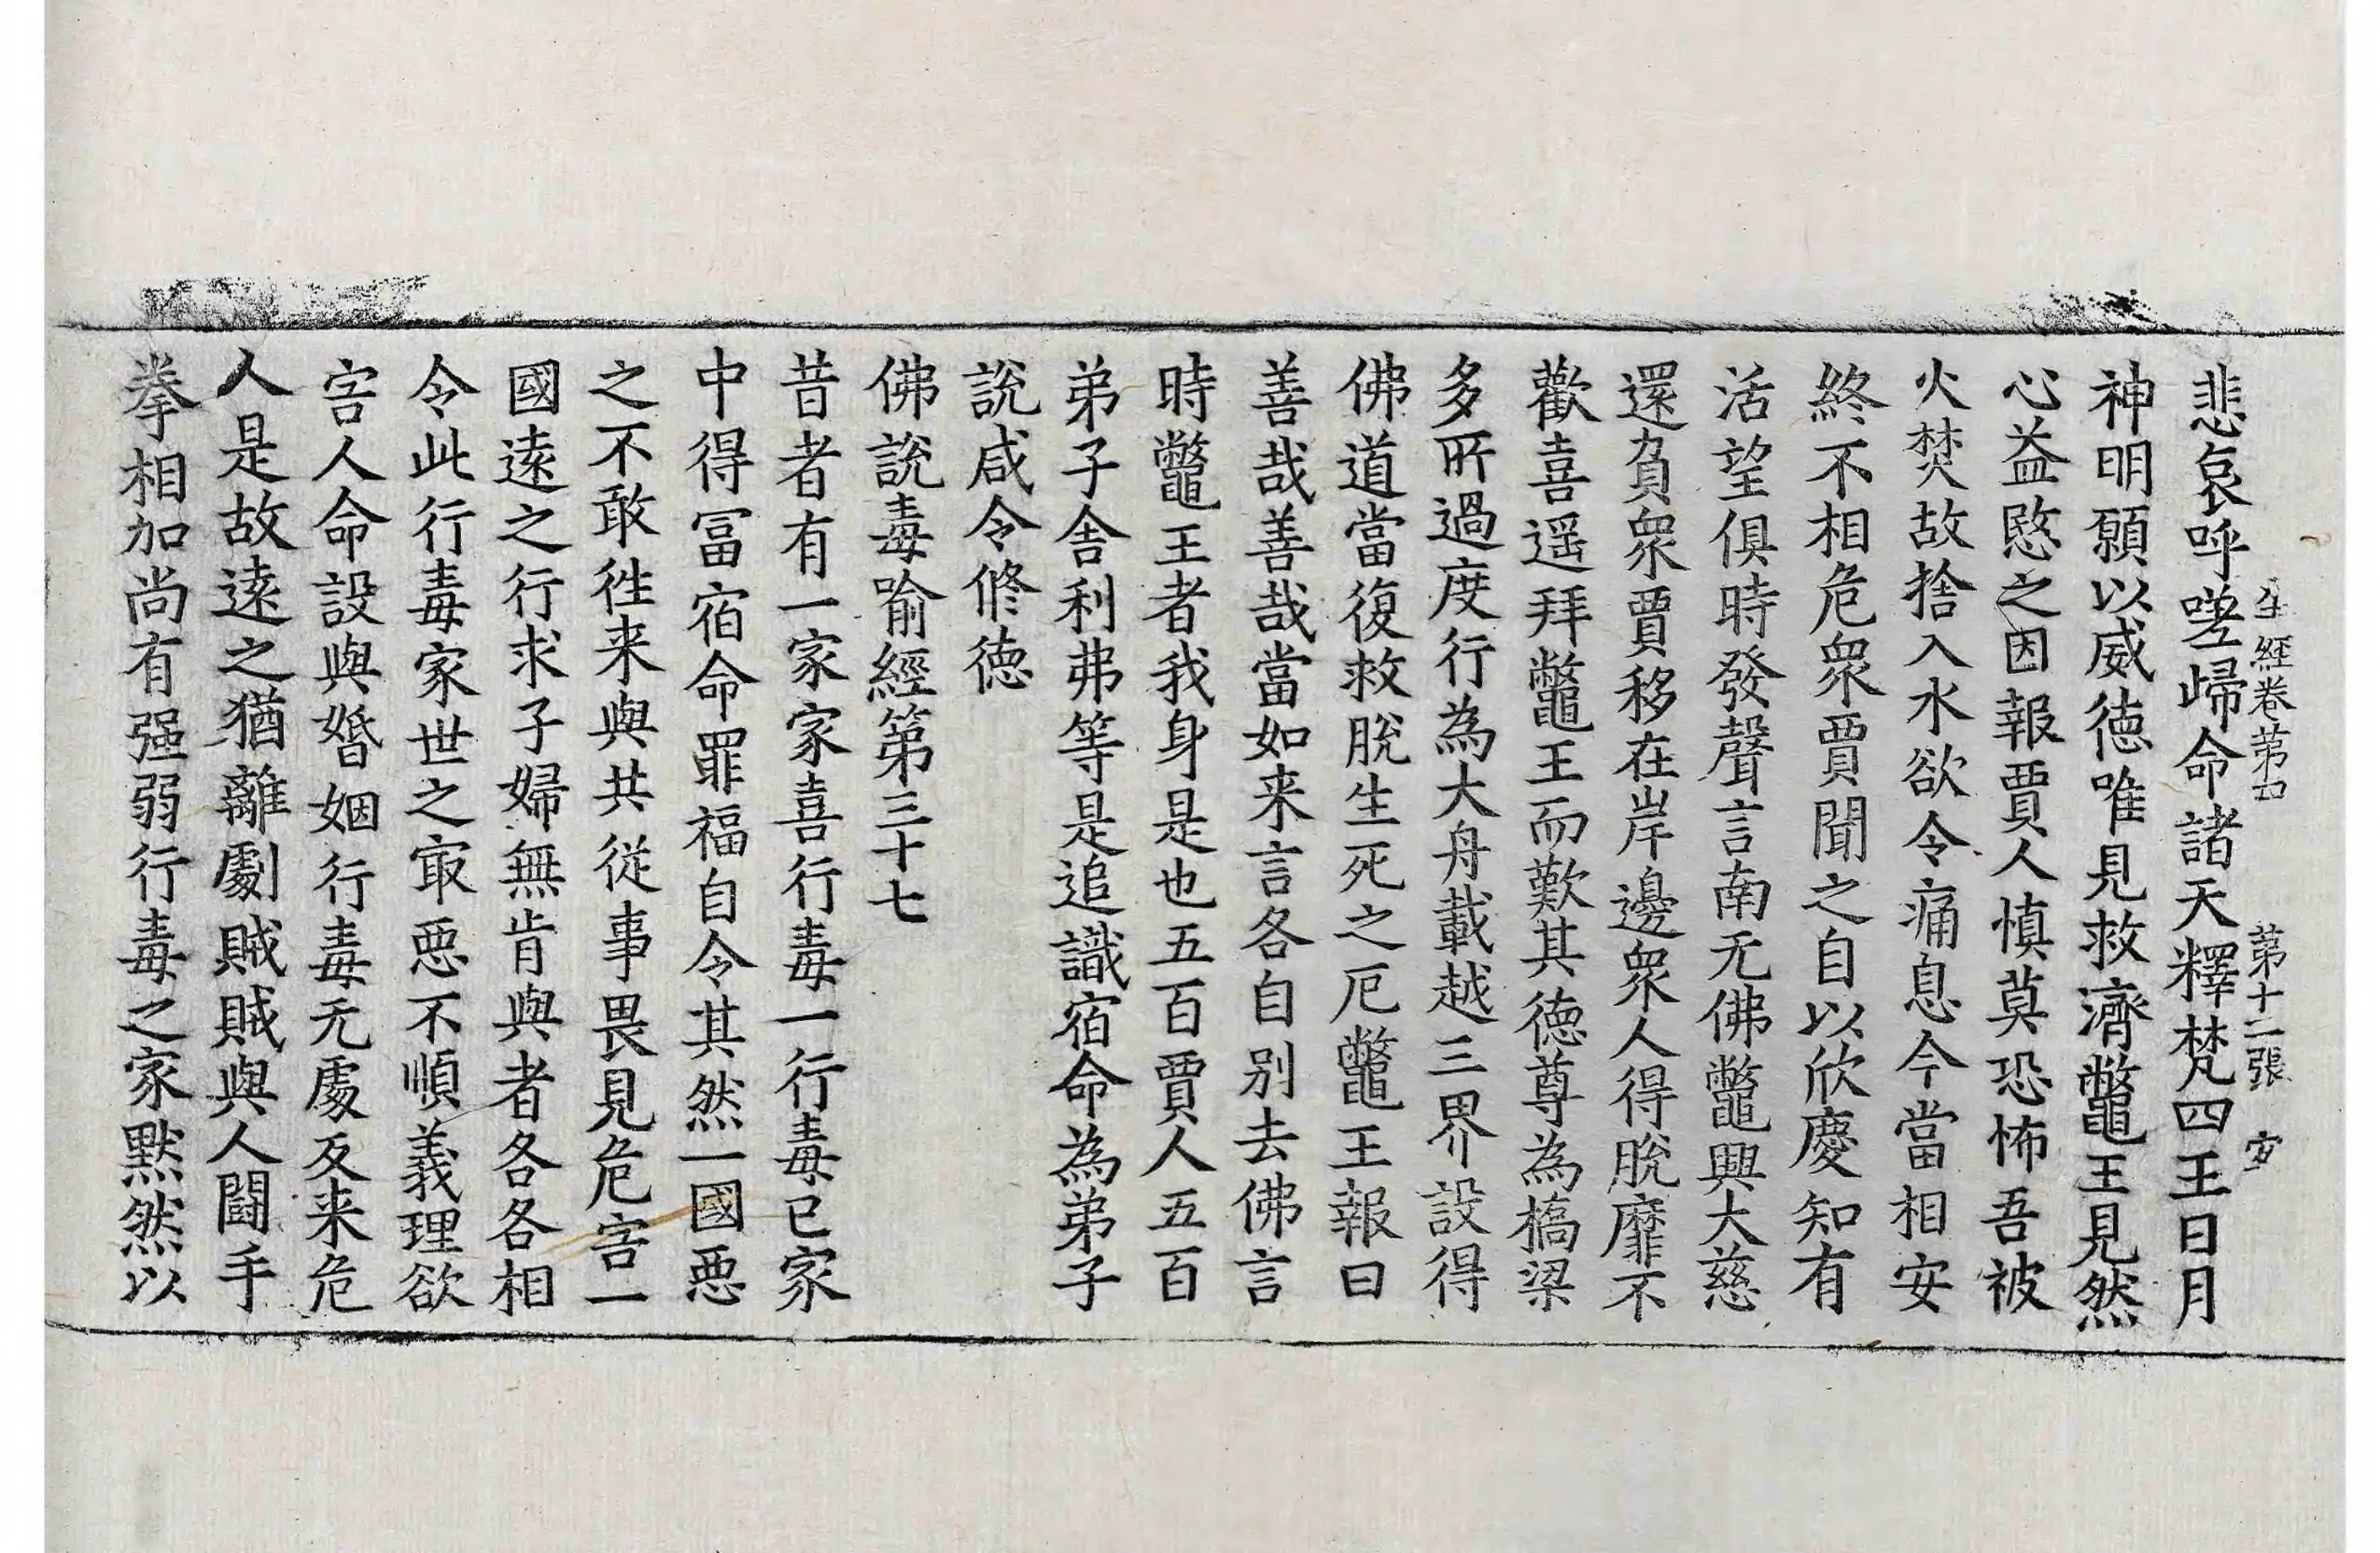 生經卷第四　第十二張　安
悲哀呼嗟歸命諸天釋梵四王日月
神明願以威徳唯見救濟鼈王見然
心益愍之因報賈人慎莫恐怖吾被
火焚故捨入水欲令痛息今當相安
終不相危衆賈聞之自以欣慶知有
活望俱時發聲言南无佛鼈興大慈
還負衆賈移在岸邊衆人得脫靡不
歡喜遥拜鼈王而歎其徳尊為橋梁
多所過度行為大舟載越三界設得
佛道當復救脫生死之厄鼈王報曰
善哉善哉當如来言各自别去佛言
時鼈王者我身是也五百賈人五百
弟子舎利弗等是追識宿命為弟子
說咸令脩徳
佛說毒喻經第三十七
昔者有一家家喜行毒一行毒已家
中得冨宿命罪福自令其然一國惡
之不敢徃来與共從事畏見危害一
國逺之行求子婦無肯與者各各相
令此行毒家世之㝡惡不順義理欲
害人命設與婚姻行毒无處反来危
人是故逺之猶離劇賊賊與人鬪手
拳相加尚有强弱行毒之家默然以